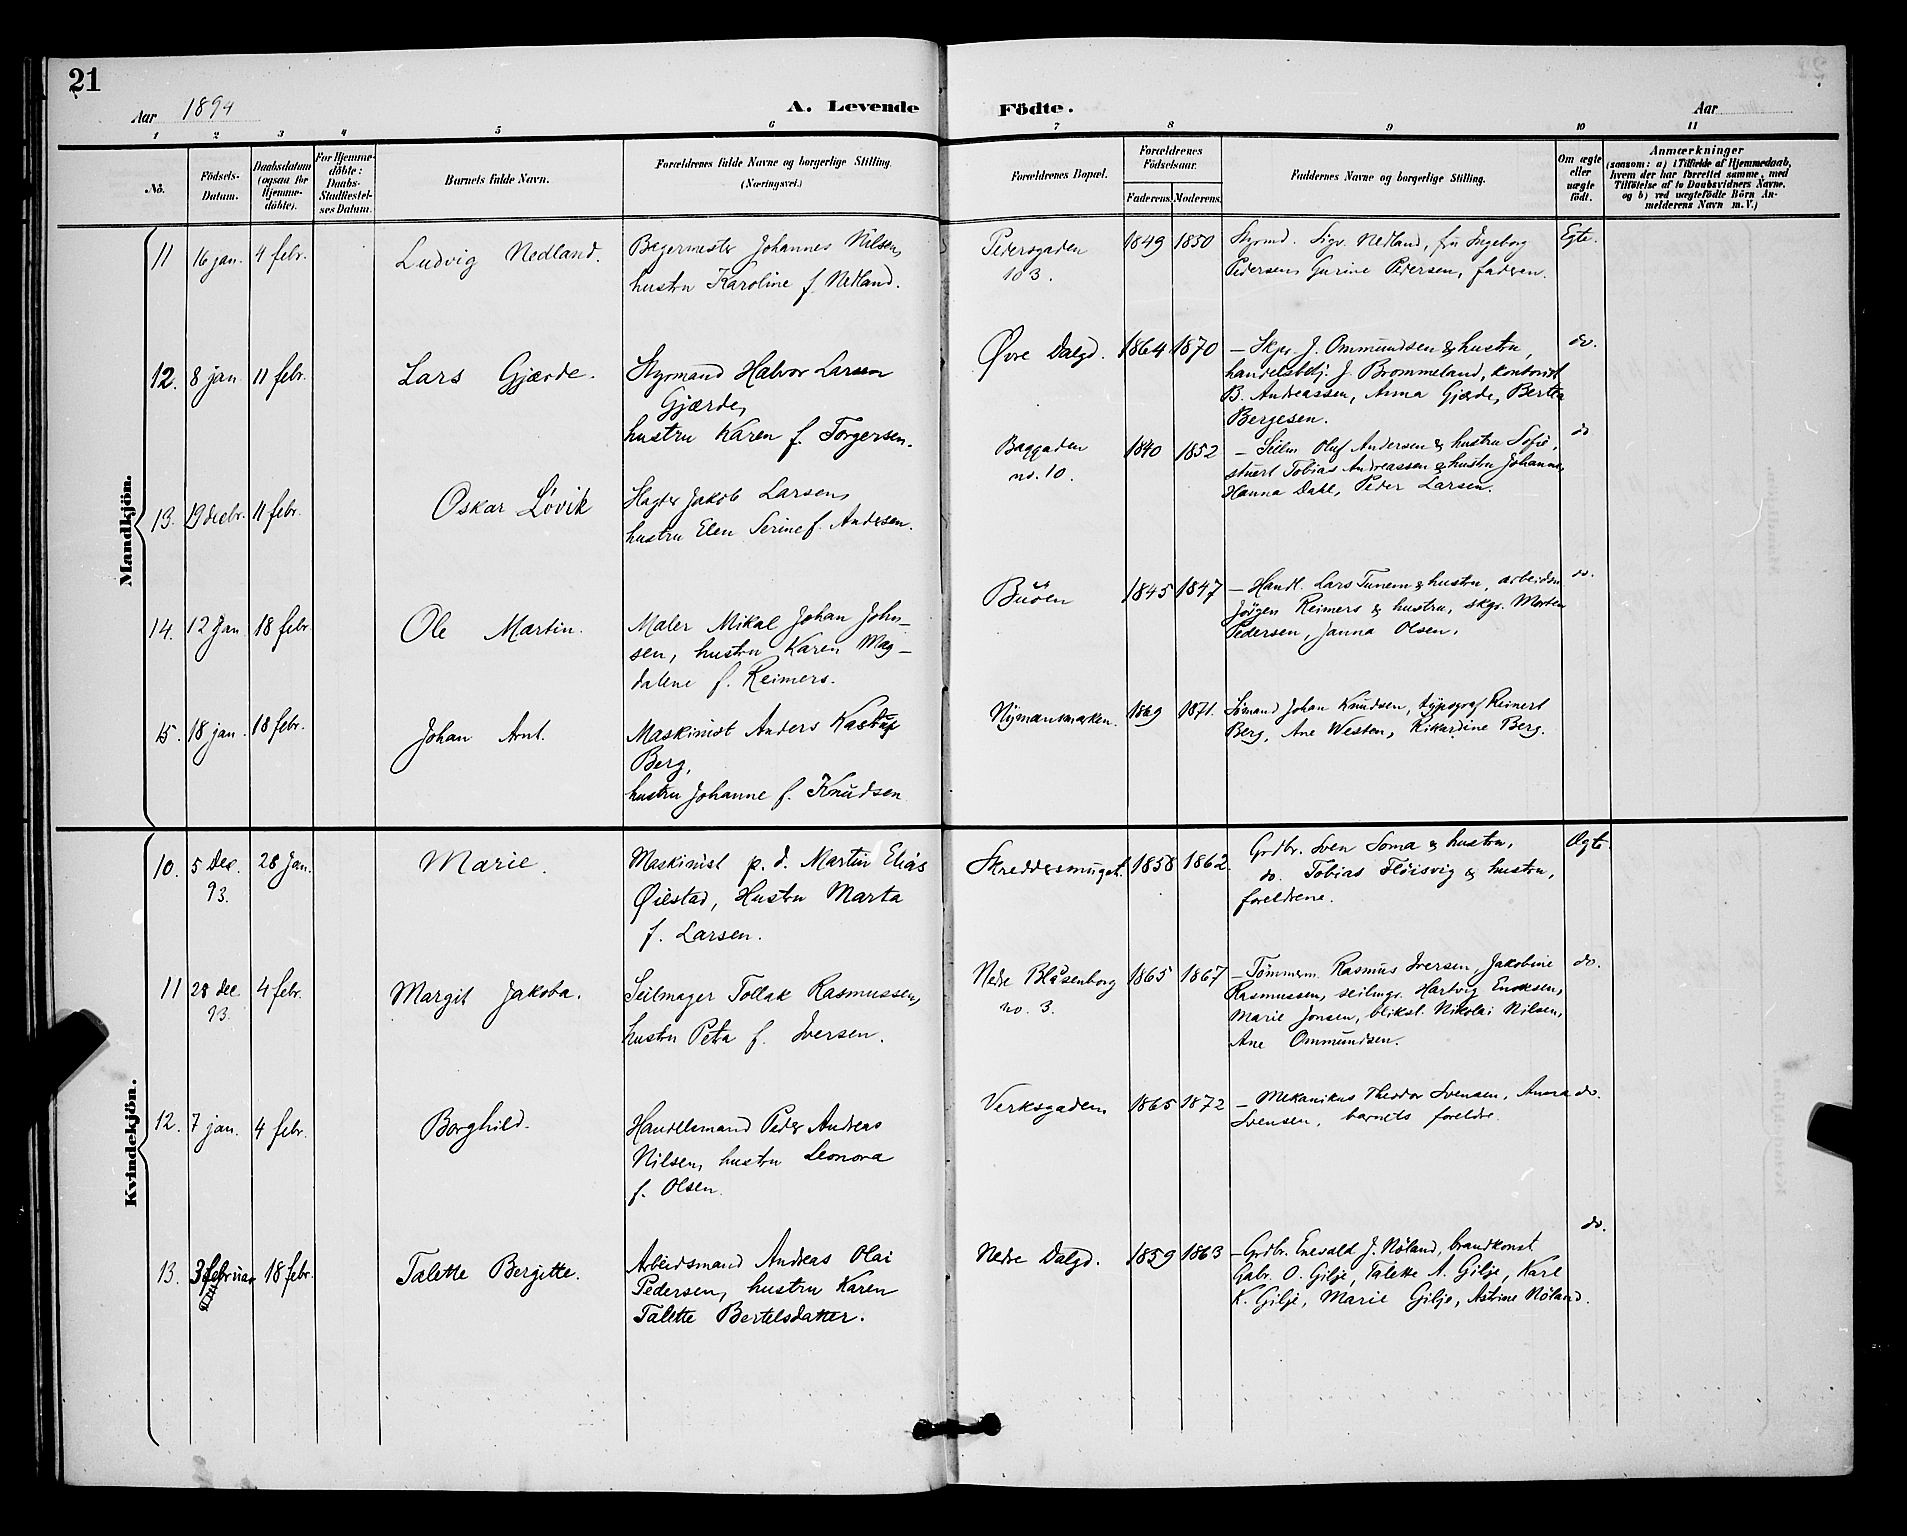 21
Aar 1894
A. Levende Födte.
Aar
1 2 3 4 5 6 7 8 9 10 11
No.
Födsels-
Datum.
Daabsdatum
(ogsaa for
Hjemme-
döbte).
For Hjemme-
döbte:
Daabs-
Stadfæstel-
ses Datum.
Barnets fulde Navn.
Forældrenes fulde Navne og borgerlige Stilling.
(Næringsvei.)
Forældrenes Bopæl.
Forældrenes
Födselsaar.
Faderens. Moderens.
Faddernes Navne og borgerlige Stilling.
Om ægte
eller
uægte
födt.
Anmærkninger
(saasom: a) i Tilfælde af Hjemmedaab,
hvem der har forrettet samme, med
Tilföielse af to Daabsvidners Navne,
og b) ved uægtefödte Börn An-
melderens Navn m. V.)
Mandkjön.
11 16 jan. 4 febr. Ludvig Nedland.
Bagermester Johannes Nilsen,
hustru Karoline f. Nedland.
Pedersgaden
103.
1849 1850
Styrmd. Sigv. Nedland, fru Ingeborg
Pedersen, Gurine Pedersen, faderen.
Egte.
12. 8 jan 11 febr. Lars Gjærde.
Styrmand Halvor Larsen
Gjærde,
hustru Karen f. Torgersen.
Øvre Dalgd. 1864 1870
– Skpr. J. Ommundsen & hustru,
handelsbetj. J. Brommeland, kontorist
B. Andreassen, Anna Gjærde, Bertha
Bergesen.
do.
13. 19 decbr. 11 febr. Oskar Løvik
Jakob Larsen,
hustru Elen Serine f. Andersen.
Baggaden
no. 10.
1840 1852
– Seilm. Oluf Andersen & hustru Sofie,
stuert Tobias Andreassen & hustru Johanne,
Hanna Dahl, Peder Larsen.
do
14. 12 Jan 18 febr Ole Martin.
Maler Mikal Johan John-
sen, hustru Karen Mag-
dalene f. Reimers.
Buöen 1845 1847
– Handl. Lars Tunem & hustru, arbeidsm.
Jörgen Reimers & hustru, skpr. Morten
Pedersen, Janna Olsen.
do.
15. 18 jan. 18 febr. Johan Arnt.
Maskinist Anders Kastrup
Berg,
hustru Johanne f. Knudsen
Nymansmarken. 1869 1871.
Sømand Johan Knudsen, typograf Reinert
Berg, Ane Westen, Rikkardine Berg.
Kvindekjön.
10. 5 Dec.
93.
28 Jan. Marie.
Maskinist p. d. Martin Elias
Øilestad, Hustru Marta
f. Larsen.
Skreddersmuget. 1858 1862.
Grdbr. Sven Soma & hustru,
do. Tobias Flöisvig & hustru,
foreldrene.
Ægte
11 28 dec
93.
4 febr. Margit Jakoba.
Seilmager Tollak Rasmussen,
hustru Petra f. Iversen.
Nedre Blåsenborg
no. 3.
1865 1867
– Tömmerm. Rasmus Iversen, Jakobine
Rasmussen, seilmgr. Hartvig Enoksen,
Marie Jonsen, bliksl. Nikolai Nilsen,
Ane Ommundsen.
do.
12. 7 jan. 4 febr. Borghild.
Handelsmand Peder Andreas
Nilsen, hustru Leonora
f. Olsen.
Verksgaden 1865 1872
– Mekanikus Theodor Svensen, Anna
Svensen, barnets foreldre.
do.
13. 3 februar 18 febr. Talette Bergitte.
Arbeidsmand Andreas Olai
Pedersen, hustru Karen
Talette Bertelsdatter.
Nedre Dalgd. 1859 1863
– Grdbr. Enevald J. Nøland, brandkonst
Gabr. O. Gilje, Talette A. Gilje, Karl
K. Gilje, Marie Gilje, Astrine Nøland.
do.